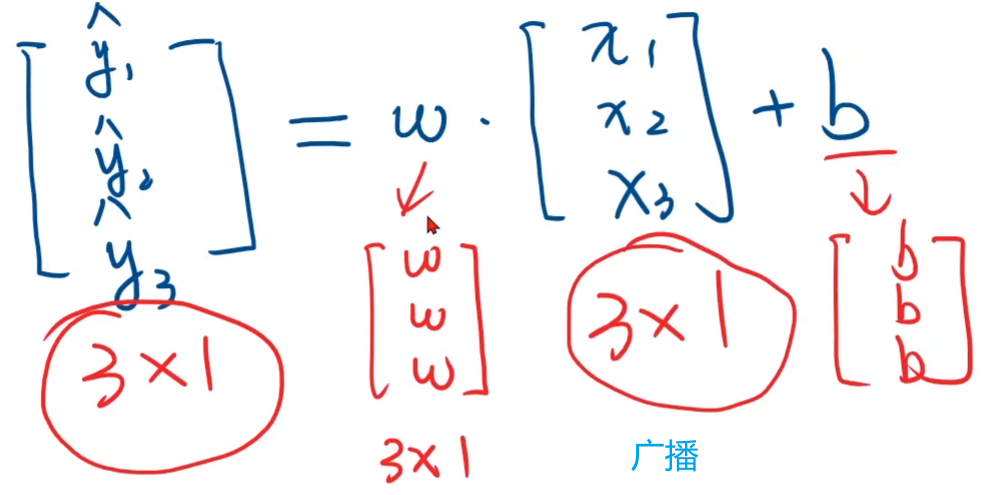 [ŷ₁ ŷ₂ ŷ₃] = w · [x₁ x₂ x₃] + b
[w w w] [b b b]
3×1 3×1
3×1 广播